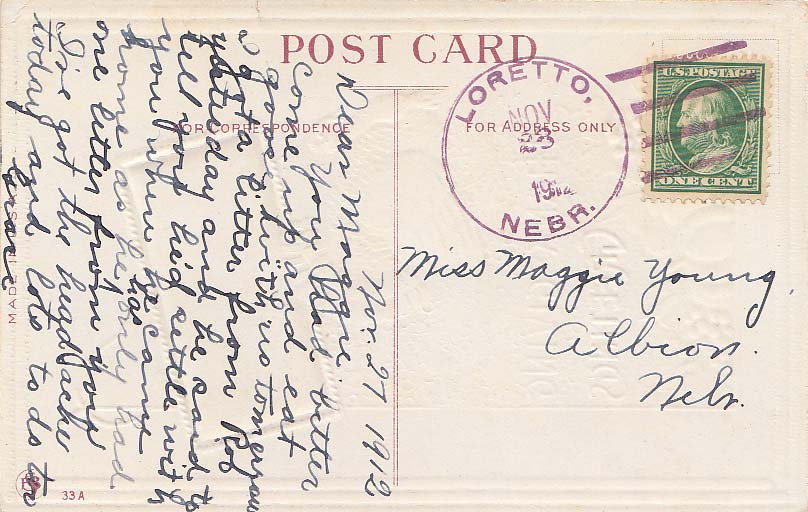 POST CARD
FOR CORRESPONDENCE
FOR ADDRESS ONLY
LORETTO,
NOV
23
1912
NEBR.
U.S. POSTAGE
ONE CENT
Miss Maggie Young,
Albion.
Nebr.
Nov. 27 1912
Dear Maggie
You Had better
come up and eat
goose with us
got a letter from Roy
yesterday and he said to
tell you he'd settle with
you when he came
home as he has only had
one letter from you
I've got the head ache
today and lots to do
MADE IN
33 A